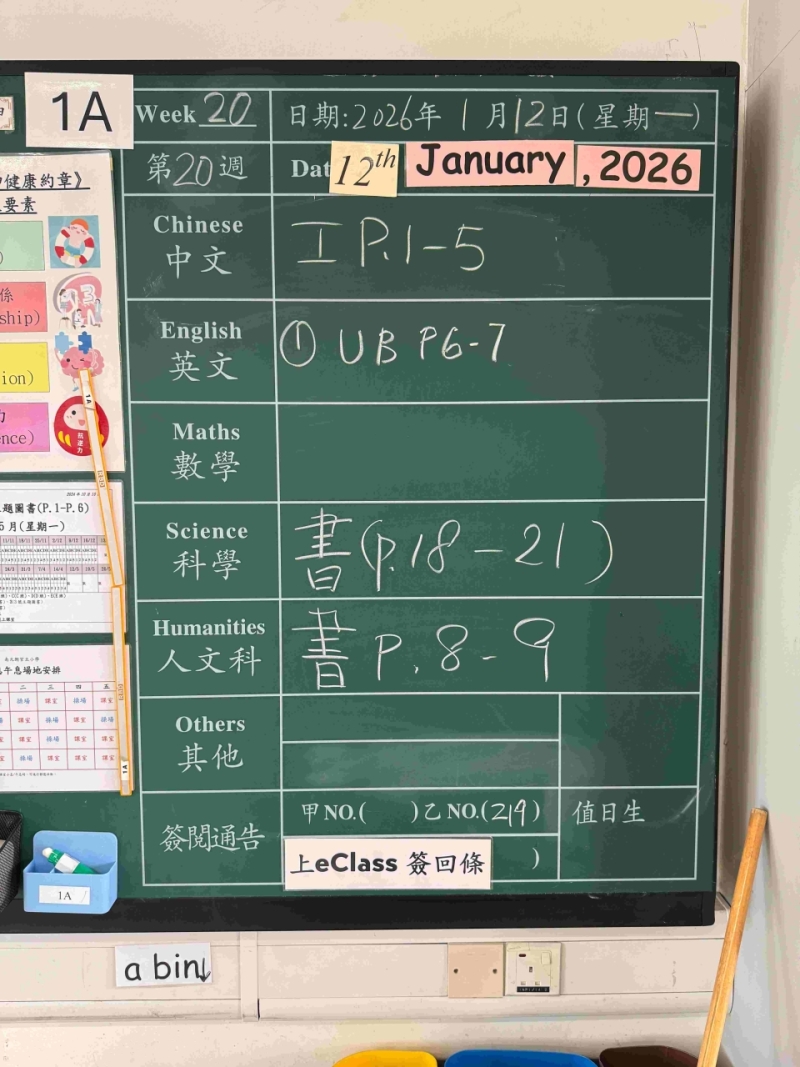 1A
Week 20
日期:2026年1月12日(星期一)
第20週
Dat 12th January, 2026
Chinese
中文
工 P.1-5
English
英文
① UB P6-7
Maths
數學
Science
科學
書(p.18-21)
Humanities
人文科
書 P.8-9
Others
其他
簽閱通告
甲NO.( )乙NO.(219)
值日生
上eClass 簽回條
)
健康約章》
要素
係
ship)
ion)
力
ence)
1A
題圖書(P.1-P.6)
月(星期一)
午息場地安排
二 三 四 五
1A
1A
a bin